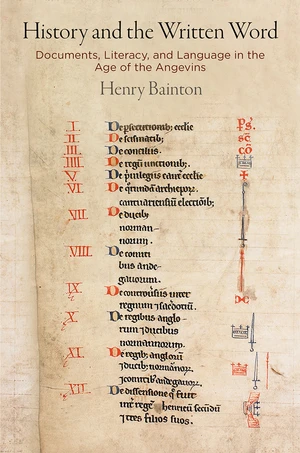 History and the Written Word
Documents, Literacy, and Language in the
Age of the Angevins
Henry Bainton
I. De psecutionib; ecclie
II. De scismatib;
III. De conciliis.
IIII. De regū unctionib;.
V. De pͥuilegiis cant' ecclie
VI. De archiepor.
cantuariensiū electiōib;.
VII. De ducib;
norman-
norum.
VIII. De comiti
bus ande-
gauorum.
IX. De inter
regnum ⁊ sacdotiū.
X. De regibus anglo-
rum ⁊ ducibus
normannorum.
XI. De regib; angloꝝ
⁊ ducib; normānoꝝ.
⁊ comitib; andegauoꝝ.
XII. De dissensione q̄ fuit
int' regē secūdū
⁊ tres filios suos.